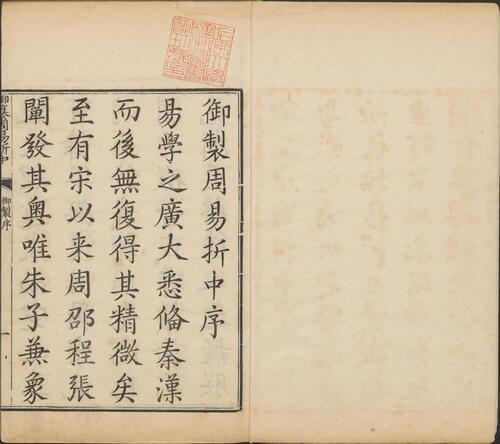 御製周易折中序
易學之廣大悉俻秦漢
而後無復得其精微矣
至有宋以来周邵程張
闡發其奥唯朱子兼象
御纂周易折中
御製序
一